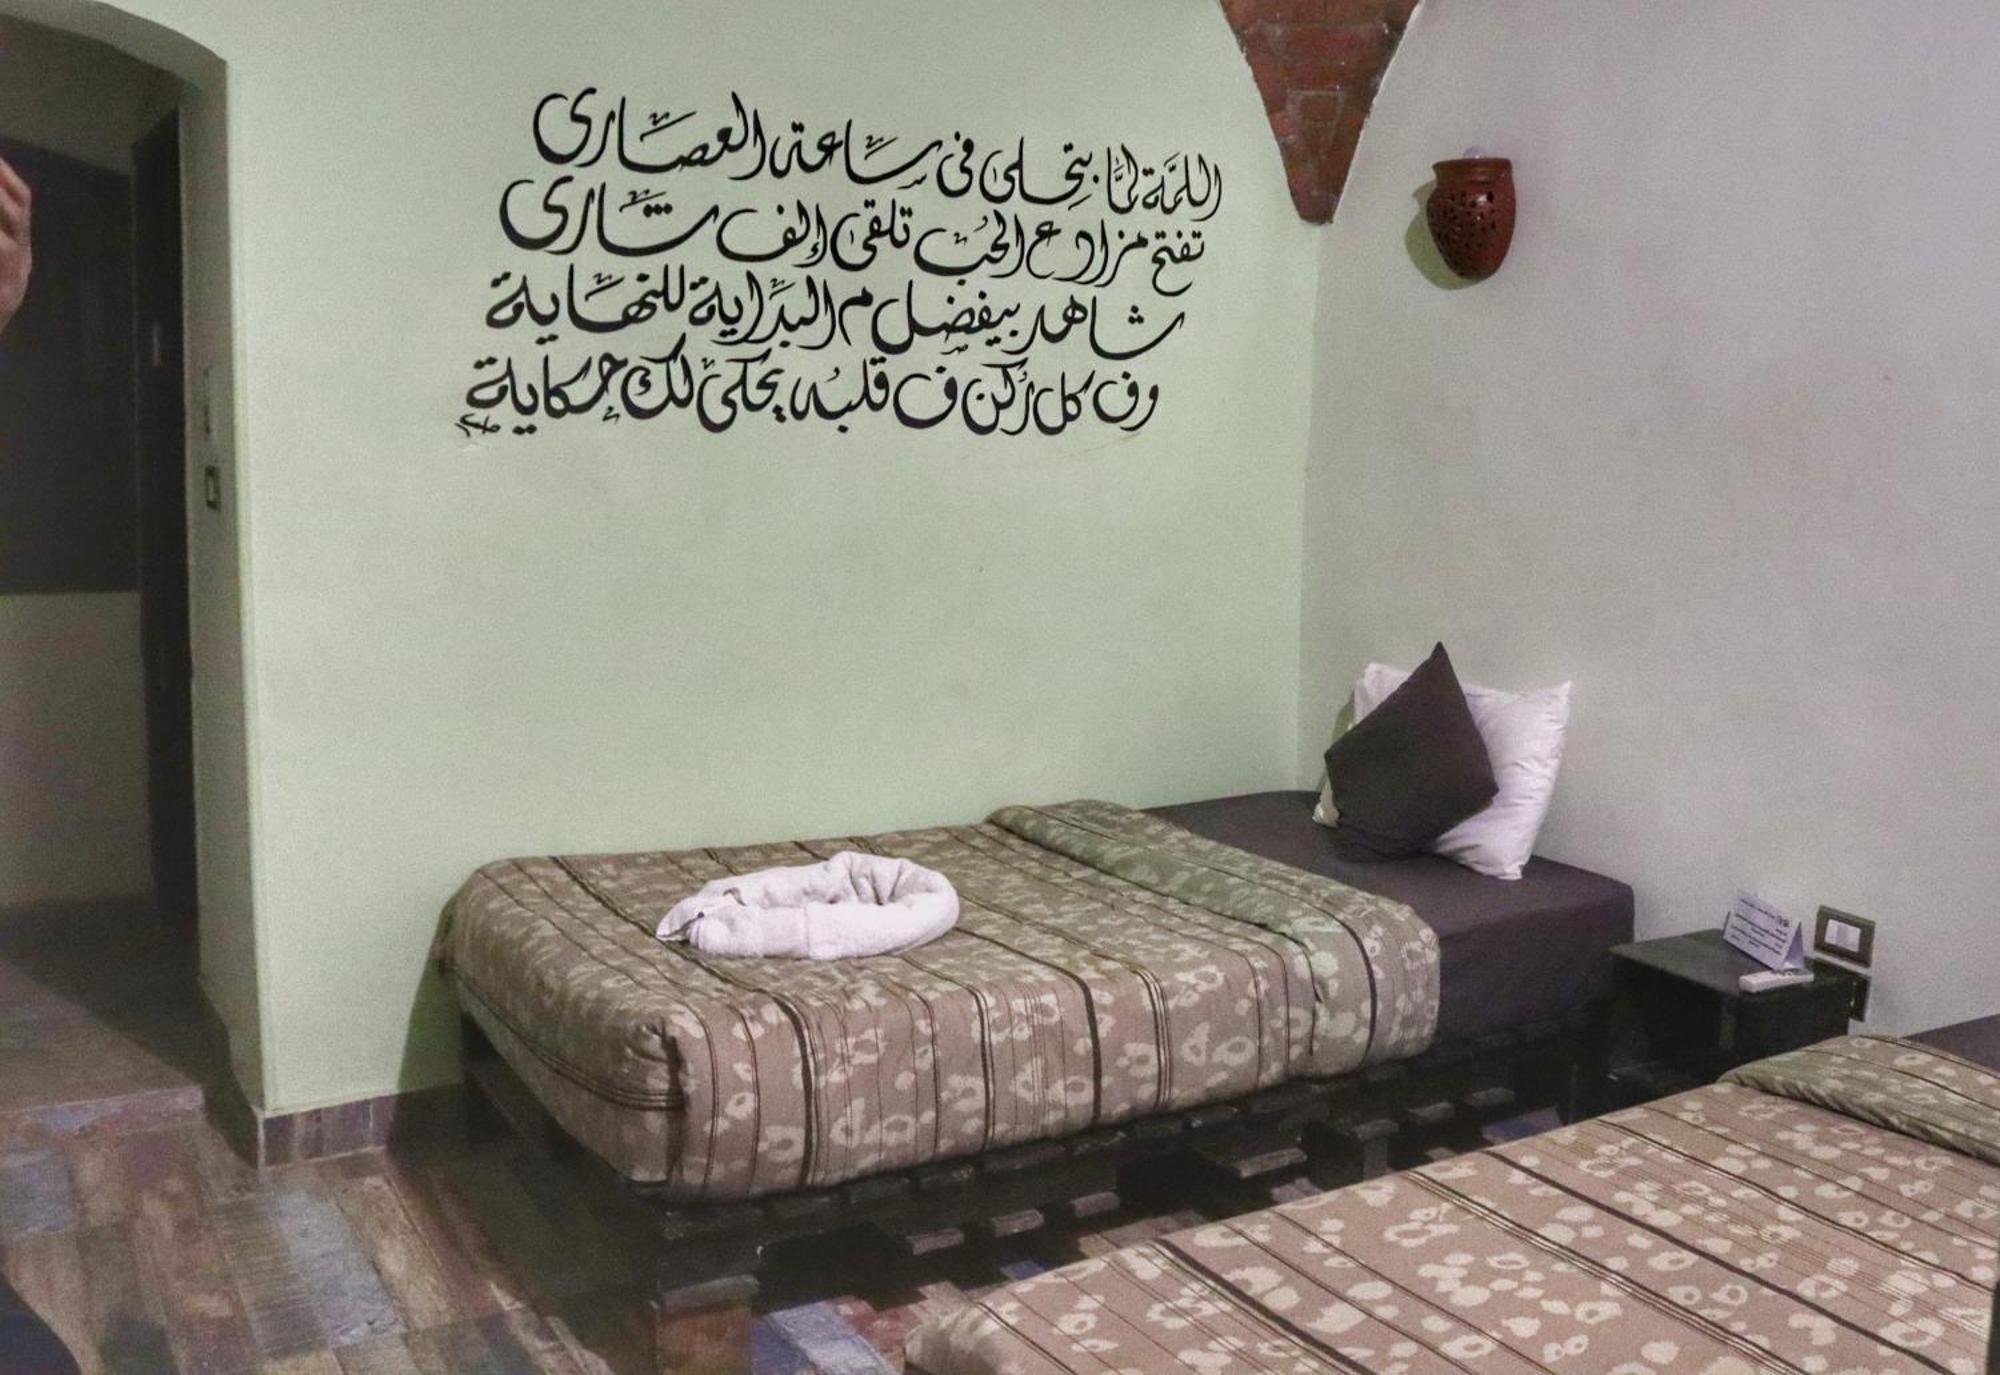 اللمَّة لمَّا بتِحلى في سَاعة العصَارى
تفتح مزاد ع الحُب تلقى إلف شَارى
شاهد بيفضل م البدَاية للنهَاية
وف كل رُكن ف قلبُه يحكى لك حكاية